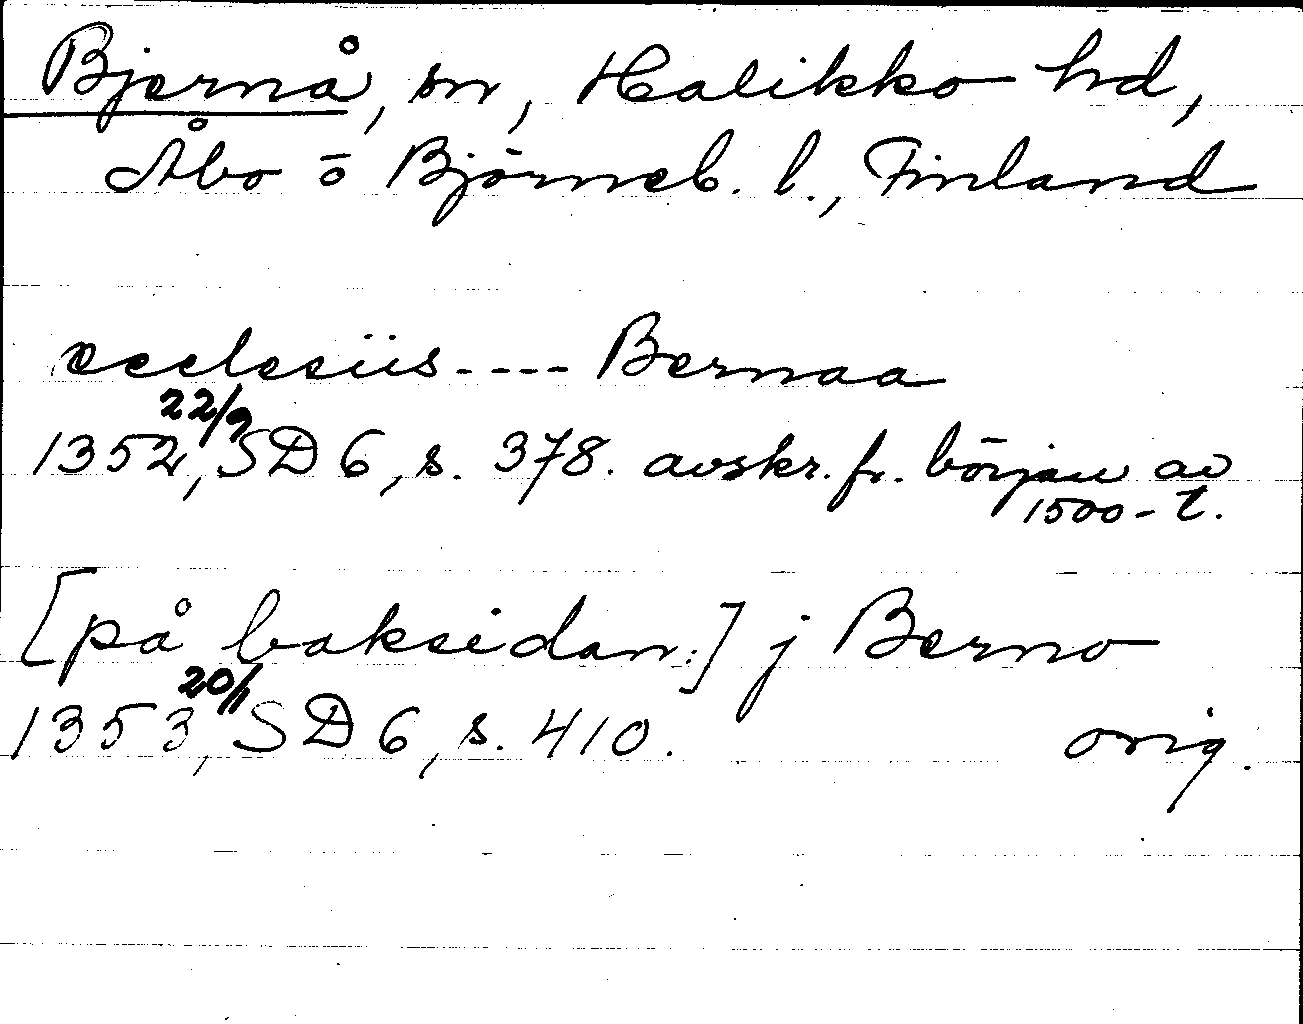 Bjernå, sn, Halikko hd,
Åbo o Björneb. l., Finland
ecclesiis---- Bernaa
1352 22/9, SD 6, s. 378. avskr. fr. början av
1500-t.
[på baksidan:] j Berno
1353 20/1, SD 6, s. 410. orig.